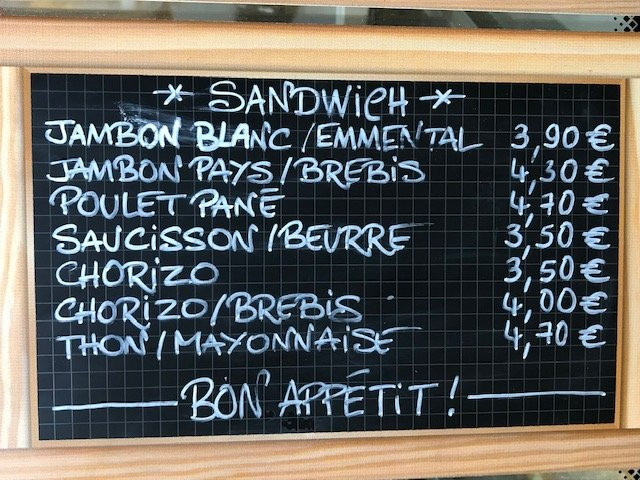 * SANDWICH *
JAMBON BLANC/EMMENTAL 3,90 €
JAMBON PAYS/BREBIS 4,30 €
POULET PANÉ 4,70 €
SAUCISSON/BEURRE 3,50 €
CHORIZO 3,50 €
CHORIZO/BREBIS 4,00 €
THON/MAYONNAISE 4,70 €
BON APPÉTIT!